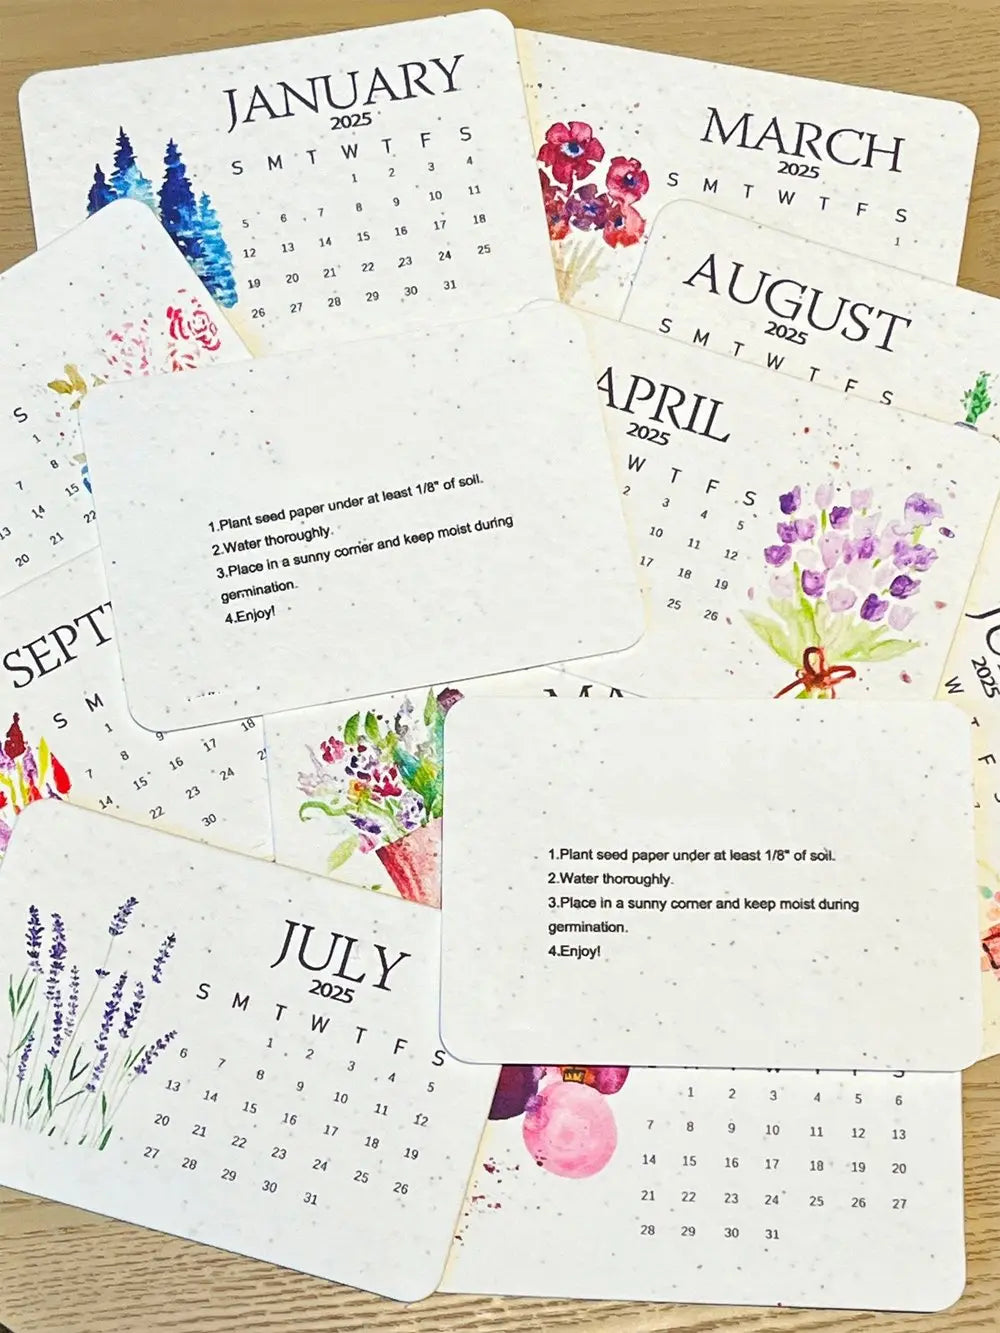 JANUARY
2025
S M T W T F S
1 2 3 4
5 6 7 8 9 10 11
12 13 14 15 16 17 18
19 20 21 22 23 24 25
26 27 28 29 30 31
MARCH
2025
S M T W T F S
1
AUGUST
2025
S M T W T F S
S
1
7 8
13 14 15
20 21 22
APRIL
2025
W T F S
2 3 4 5
10 11 12
17 18 19
25 26
1.Plant seed paper under at least 1/8" of soil.
2.Water thoroughly.
3.Place in a sunny corner and keep moist during
germination.
4.Enjoy!
SEPT
S M
1
7 8 9
14 15 16 17 18
22 23 24
30
2025
W T F
1.Plant seed paper under at least 1/8" of soil.
2.Water thoroughly.
3.Place in a sunny corner and keep moist during
germination.
4.Enjoy!
JULY
2025
S M T W T F S
1 2 3 4 5
6 7 8 9 10 11 12
13 14 15 16 17 18 19
20 21 22 23 24 25 26
27 28 29 30 31
1 2 3 4 5 6
7 8 9 10 11 12 13
14 15 16 17 18 19 20
21 22 23 24 25 26 27
28 29 30 31